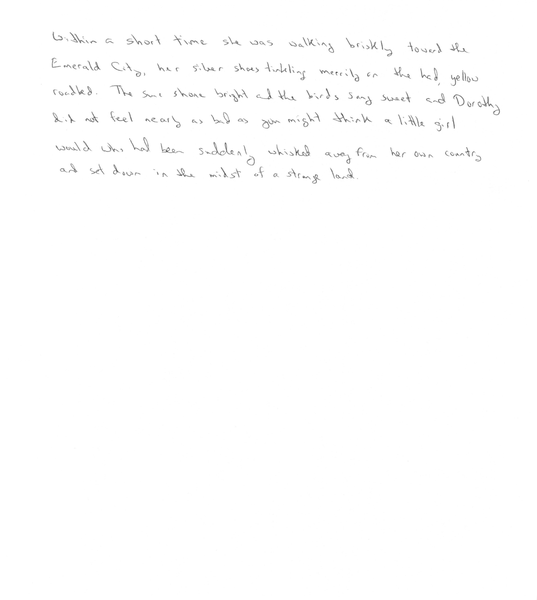 Within a short time she was walking briskly toward the
Emerald City, her silver shoes tinkling merrily on the hard, yellow
roadbed. The sun shone bright and the birds sang sweet and Dorothy
did not feel nearly as bad as you might think a little girl
would who had been suddenly whisked away from her own country
and set down in the midst of a strange land.